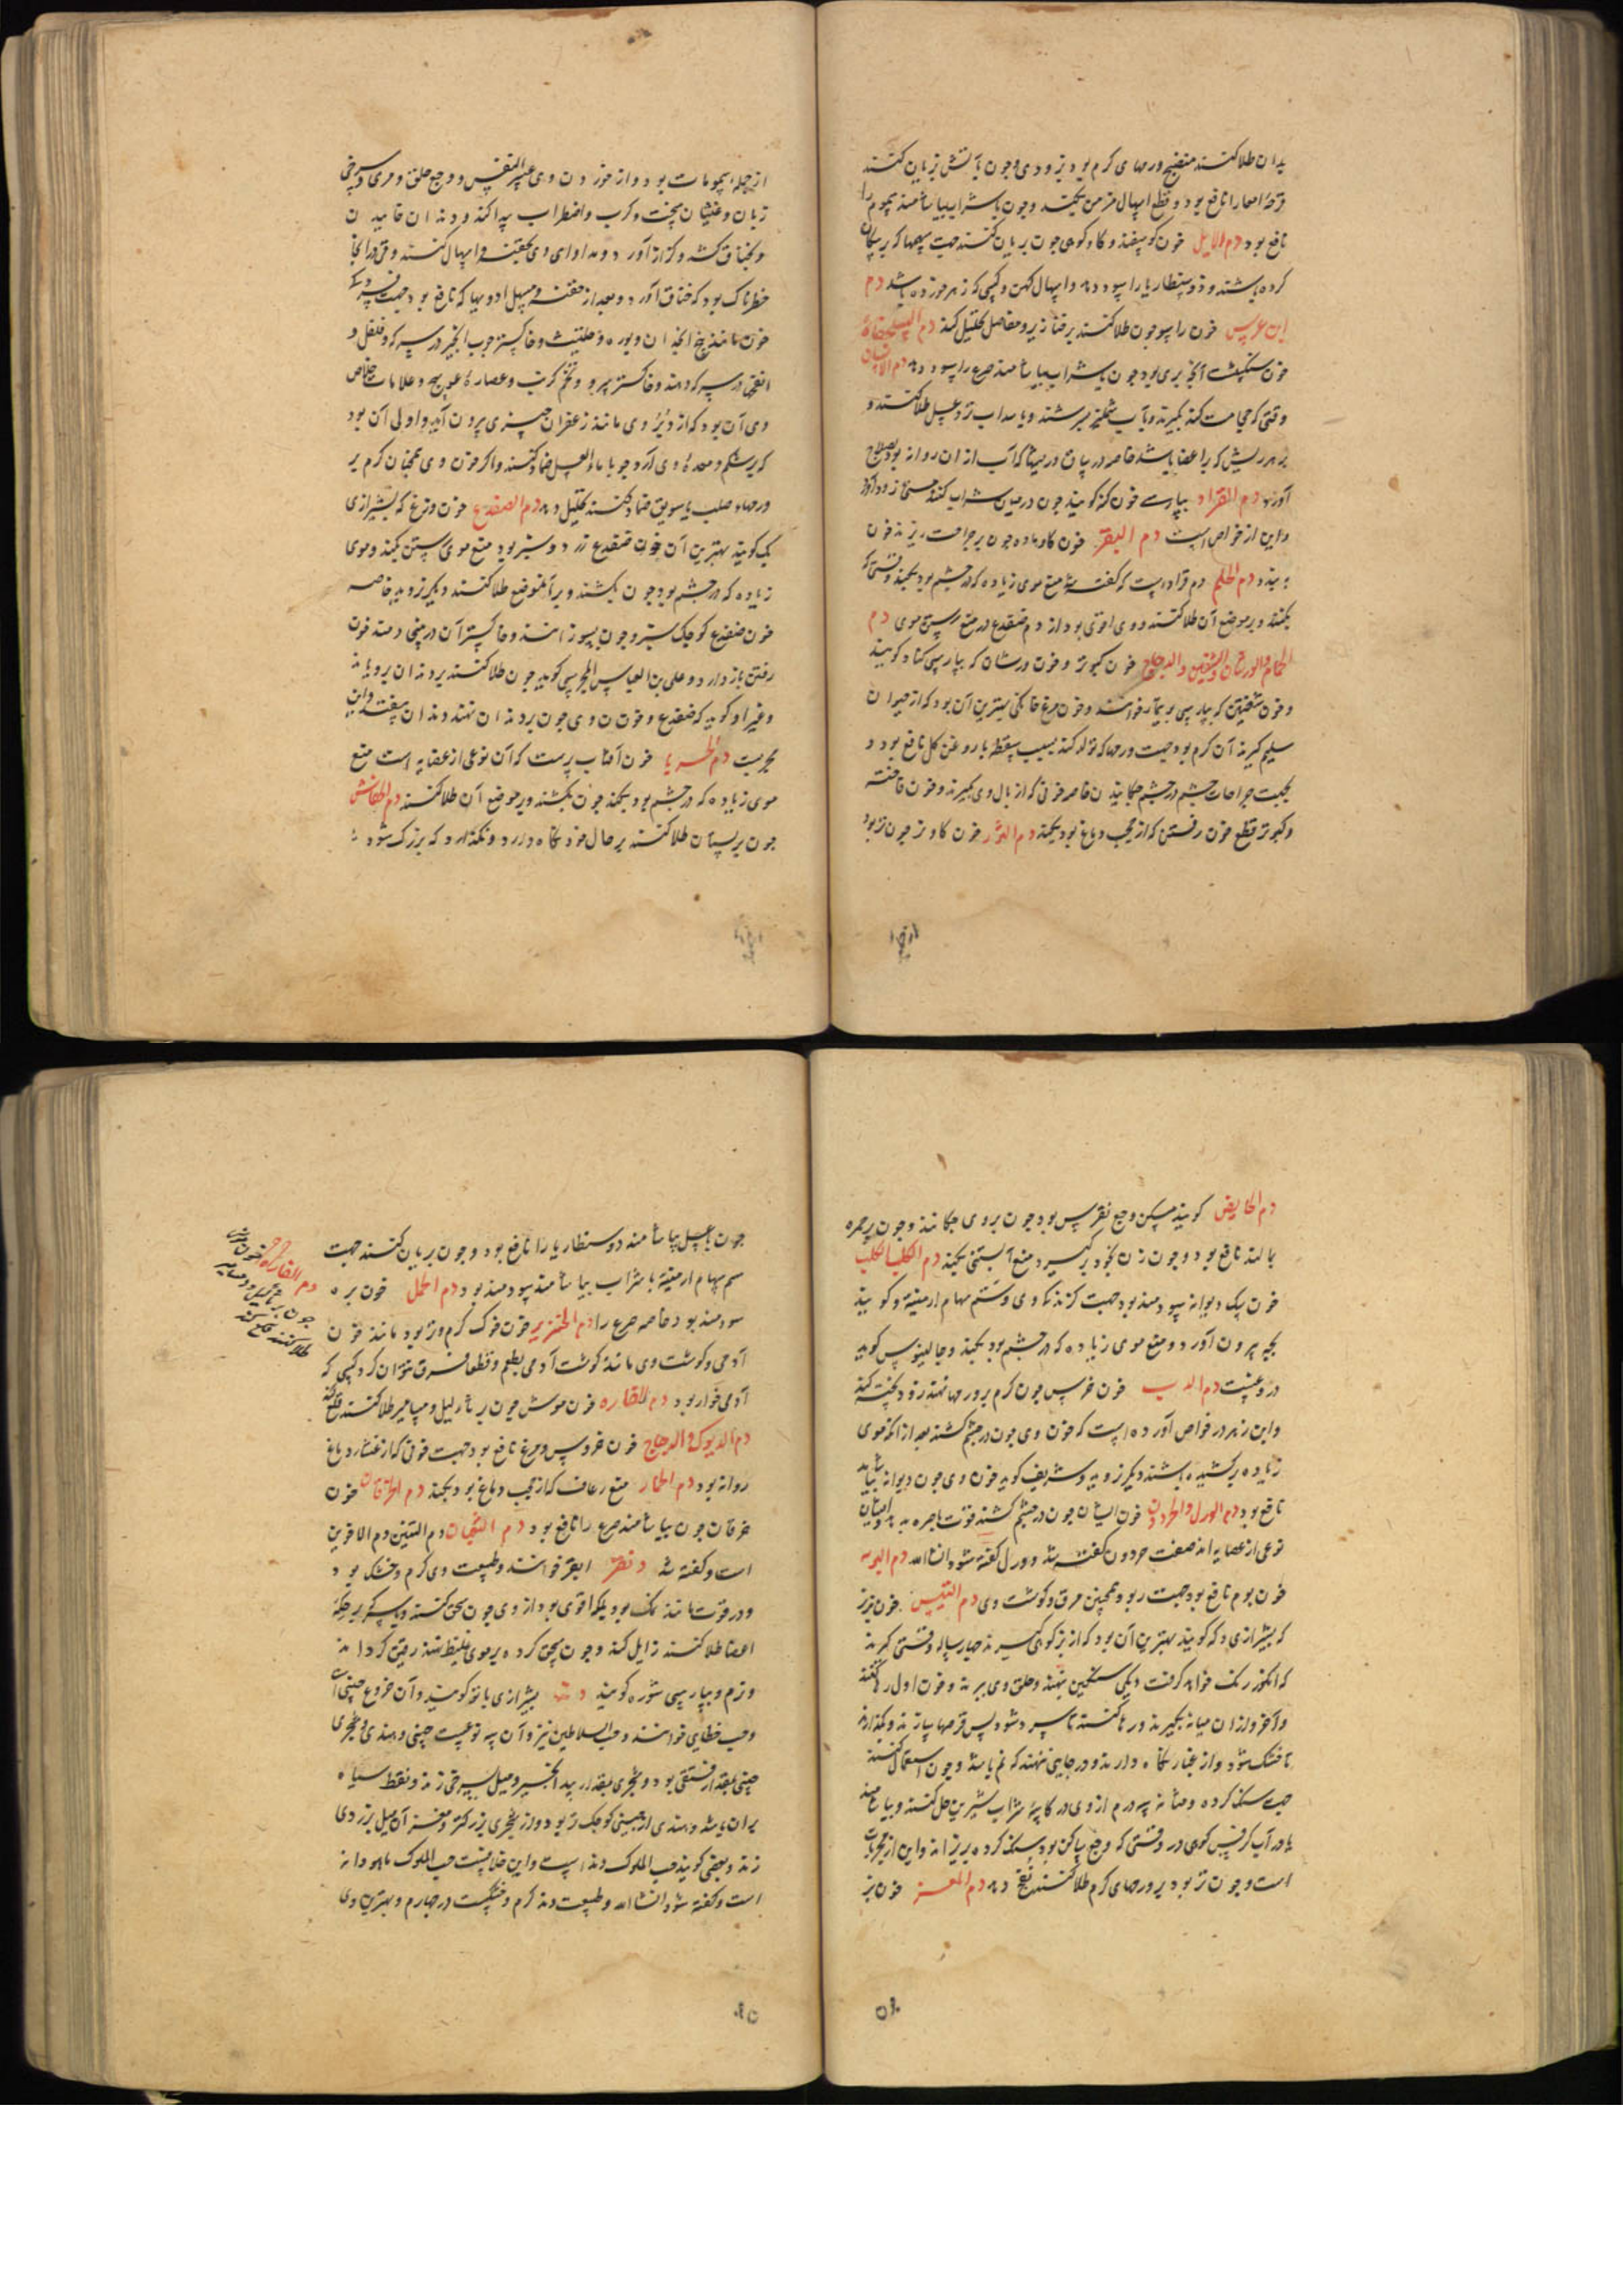 بدان طلا کنند منضج ورمهای گرم بود بزودی و چون بآتش بریان کنند
قرحهٔ امعا را نافع بود و قطع اسهال مزمن بکند و چون با شراب بیاشامند سموم را
نافع بود دم الایل خون گوسفند و گاو کوهی چون بریان کنند جهت سمها که بر پیکان
کرده باشند و ذوسنطاریا را سود دهد و اسهال کهن و کسی که زهر خورده باشد دم
ابن عرس خون راسو چون طلا کنند بر خنازیر و مفاصل تحلیل کند دم السلحفاة
خون سنگ پشت آنچه بری بود چون با شراب بیاشامند صرع را سود دهد دم الانسان
وقتی که حجامت کنند بگیرند و بآب سرشند و با سداب تر و عسل طلا کنند و
بر هر ریش که بر اعضا باشد خاصه در ران و ریشها که آب از آن روانه بود بصلاح
آورد دم القراد بپارسی خون کنه گویند چون در میان شراب کنند مستی زود آورد
و این از خواص است دم البقر خون گاو ماده چون بر جراحت ریزند خون
ببندد دم الحلم دم قراد است که گفته شد منع موی زیاده که در چشم بود بکند وقتی که
بکنند و بر موضع آن طلا کنند و وی اقوی بود از دم ضفدع در منع رستن موی دم
الحمام والورشان والشفنین والدجاج خون کبوتر و خون ورشان که بپارسی گویند
و خون شفنین که بپارسی بوتیمار خوانند و خون مرغ خانگی بهترین آن بود که از حیوان
سلیم گیرند آن گرم بود جهت ورمها که تولد کند بسبب سقطه با روغن گل نافع بود و
بجهت جراحات چشم در چشم چکانیدن خاصه خونی که از بال وی گیرند و خون فاخته
و کبوتر قطع خون رفتن که از حجب دماغ بود بکند دم الثور خون گاو نر چون تر بود
از جمله سمومات بود و از خوردن وی عسر النفس و وجع حلق و مری و سرخی
زبان و غشیان سخت و کرب و اضطراب پیدا کند و دندان خاییدن
و بخناق کشد و کزاز آورد و مداوای وی بحقنه و اسهال کنند و قی در اینجا
خطرناک بود که خناق آورد و بعد از حقنه و مسهل ادویها که نافع بود جهت
خون مانند پنج انجدان و بوره و حلتیت و خاکستر چوب انجیر در سرکه و فلفل و
انفحه در سرکه دهند و خاکستر سرو و تخم کرنب و عصارهٔ عوسج و علامات خلاص
وی آن بود که از دبر وی مانند زعفران چیزی بیرون آید و اولی آن بود
که بر شکم و معدهٔ وی آرد جو با ماء العسل ضماد کنند و اگر خون وی همچنان گرم بر
ورمهاء صلب با سویق ضماد کنند تحلیل دهد دم الضفدع خون وزغ که بشیرازی
بک گویند بهترین آن خون ضفدع زرد و سبز بود منع موی رستن بکند و موی
زیاده که در چشم بود چون بکشند و بر آن موضع طلا کنند دیگر نروید خاصه
خون ضفدع کوچک سبز و چون بسوزانند و خاکستر آن در بینی دمند خون
رفتن باز دارد و علی بن العباس المجوسی گوید چون طلا کنند بر دندان برویاند
و غیر او گوید که ضفدع و خون وی چون بر دندان نهند دندان بیفتد و این
مجربست دم الحربا خون آفتاب پرست که آن نوعی از عظایه است منع
موی زیاده که در چشم بود بکند چون بکشند و بر موضع آن طلا کنند دم الخفاش
چون بر پستان طلا کنند بر حال خود نگاه دارد و نگذارد که بزرگ شود
دم الحایض گویند مسکن وجع نقرس بود چون بر وی چکانند و چون بر جمره
بمالند نافع بود و چون زن بخود برگیرد منع آبستنی بکند دم الکلب الکلب
خون سگ دیوانه سودمند بود جهت گزندگی وی و سم سهام ارمنیه و گویند
بچه بیرون آورد و منع موی زیاده که در چشم بود بکند و جالینوس گوید
دروغست دم الدب خون خرس چون گرم بر ورمها نهند زود پخته کند
و ابن زهر در خواص آورده است که خون وی چون در چشم کشند بعد از آنکه موی
زیاده برکشیده باشند دیگر نروید و شریف گوید خون وی چون دیوانه بیاشامد
نافع بود دم الورل والحردون خون ایشان چون در چشم کشند قوت باصره بدهد و ایشان
نوعی از عظایه اند صفت حردون گفته شد و ورل گفته شود انشاالله دم البوم
خون بوم نافع بود جهت ربو و همچنین مرق و گوشت وی دم التیس خون بز نر
که بشیرازی گویند بهترین آن بود که از بز کوهی گیرند چهار ساله وقتی گیرند
که انگور رنگ خواهد گرفت دیگی سنگین بنهند و حلق وی ببرند و خون اول رها کنند
و آخر و از آن میانه بگیرند و رها کنند تا سرد شود پس قرصها سازند و بگذارند
تا خشک شود و از غبار نگاه دارند و در جایی نهند که نم نباشد و چون استعمال کنند
جهت سنگ کرده و مثانه سه درم از وی در کاسهٔ شراب شیرین حل کنند و بیاشامند
یا در آب کرفس کوهی در وقتی که وجع ساکن بود سنگ کرده بریزاند و این از مجربات
است و چون تر بود بر ورمهای گرم طلا کنند نفع دهد دم المعز خون بز
چون با عسل بیاشامند دوسنطاریا را نافع بود و چون بریان کنند جهت
سم سهام ارمنیه با شراب بیاشامند سودمند بود دم الحمل خون بره
سودمند بود خاصه صرع را دم الخنزیر خون خوک گرم و تر بود مانند خون
آدمی و گوشت وی مانند گوشت آدمی بطعم و قطعا فرق نتوان کرد کسی که
آدمی خوار بود دم الفاره خون موش چون بر ثآلیل و مسامیر طلا کنند قلع کند
دم الدیوک والدجاج خون خروس و مرغ نافع بود جهت خونی که از غشاء دماغ
روانه بود دم الحمار منع رعاف که از حجب دماغ بود بکند دم الخرفان خون
خرفان چون بیاشامند صرع را نافع بود دم الثعبان دم التنین دم الاخوین
است و گفته شد ابقر خوانند و طبیعت وی گرم و خشک بود
و در قوت مانند نمک بود بلکه اقوی بود از وی چون سحق کنند و با سرکه بر حکهٔ
اعضا طلا کنند زایل کند و چون سحق کرده بر موی غلیظ نهند رقیق گرداند
و نرم و بپارسی شوره گویند دند بشیرازی بانو گویند و آن خروع چینی است
و حب خطایی خوانند و حب السلاطین نیز و آن سه نوعست چینی و هندی و شجری
چینی بمقدار فستقی بود و شجری بمقدار بید انجیر و میل بسرخی زند و نقط سیاه
بران باشد و هندی از چینی کوچک تر بود و از شجری بزرگتر و مغز آن میل بزردی
زند و بعضی گویند حب الملوک دند است و این خلافست حب الملوک ماهودانه
است و گفته شود انشاالله و طبیعت دند گرم و خشکست در چهارم و بهترین وی
دم الفاره خون موش
چون بر ثآلیل و مسامیر
طلا کنند قلع کند